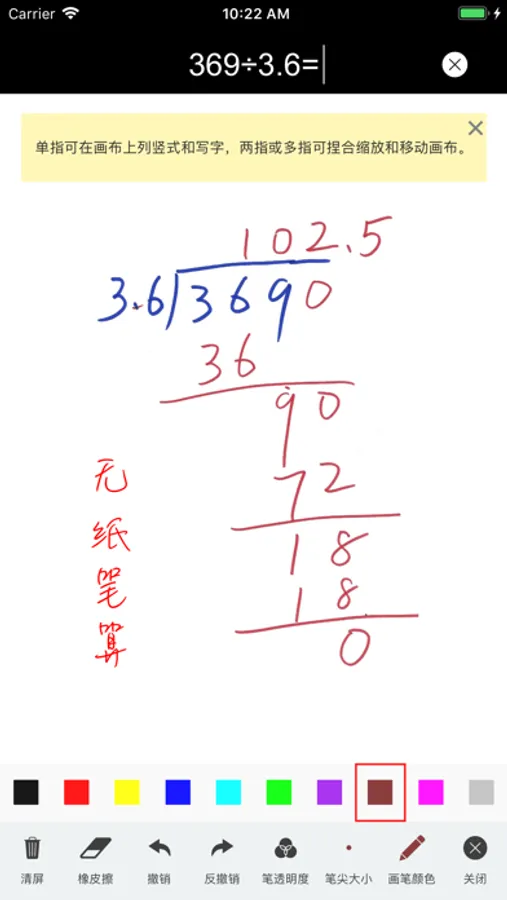 Carrier 10:22 AM
369÷3.6=
单指可在画布上列竖式和写字，两指或多指可捏合缩放和移动画布。
102.5
3.6 3690
36
90
72
18
18
0
无
纸
笔
算
清屏 橡皮擦 撤销 反撤销 笔透明度 笔尖大小 画笔颜色 关闭